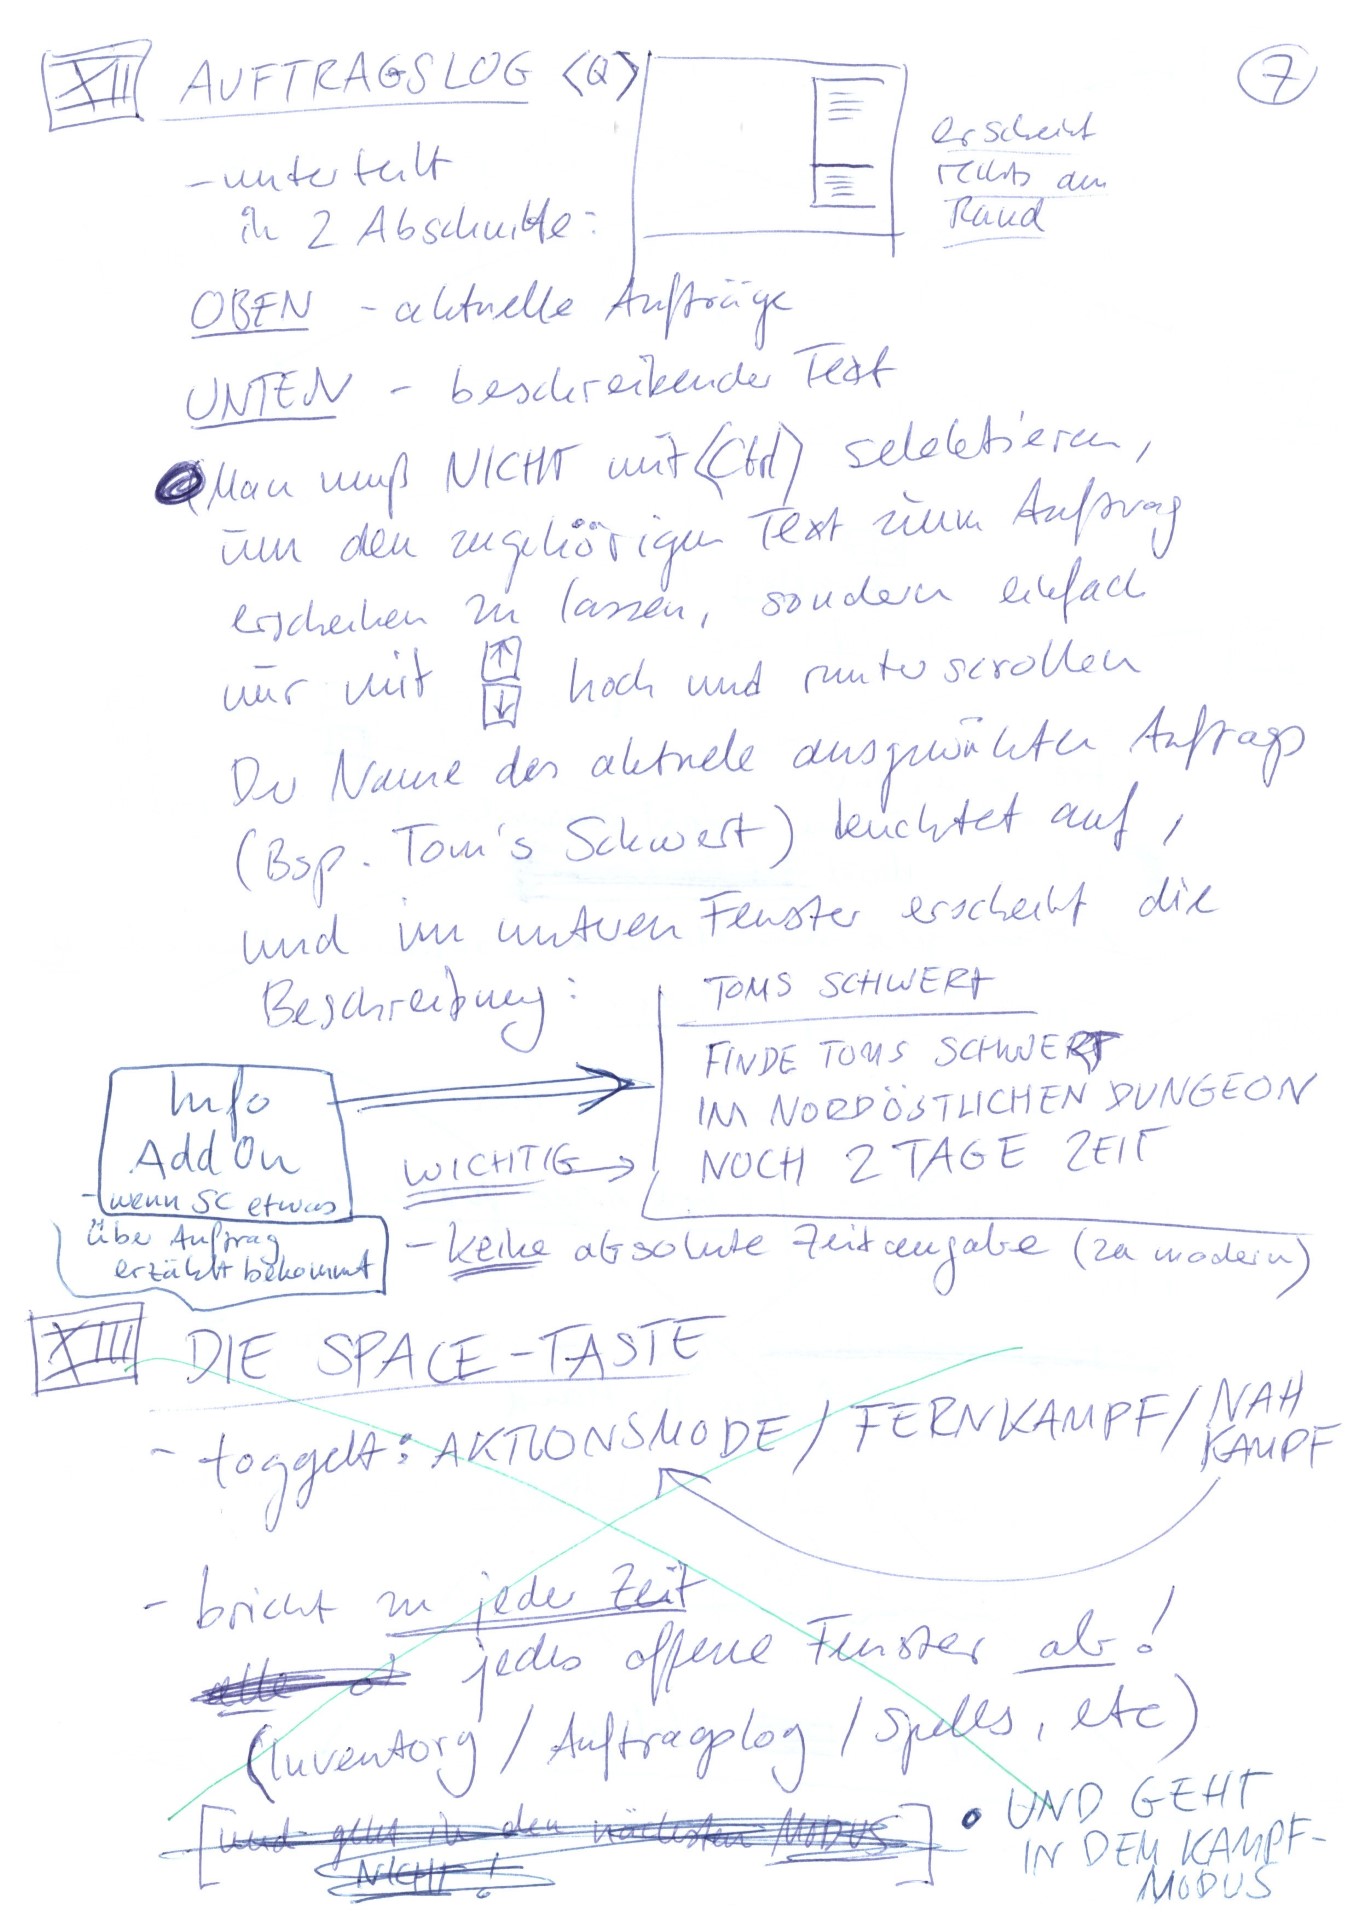 XII AUFTRAGSLOG <Q>
7
erscheint
rechts am
Rand
- unterteilt
in 2 Abschnitte:
OBEN - aktuelle Aufträge
UNTEN - beschreibender Text
Man muß NICHT mit <Ctrl> selektieren,
um den zugehörigen Text zum Auftrag
erscheinen zu lassen, sondern einfach
nur mit ↑ ↓ hoch und runter scrollen
Der Name des aktuell ausgewählten Auftrags
(Bsp. Tom's Schwert) leuchtet auf,
und im unteren Fenster erscheint die
Beschreibung:
TOMS SCHWERT
FINDE TOMS SCHWERT
IM NORDÖSTLICHEN DUNGEON
NOCH 2 TAGE ZEIT
Info
AddOn
- wenn SC etwas
über Auftrag
erzählt bekommt
WICHTIG
- keine absolute Zeitangabe (za modern)
XIII DIE SPACE-TASTE
- toggelt: AKTIONSMODE / FERNKAMPF / NAH
KAMPF
- bricht zu jeder Zeit
alle jedes offene Fenster ab!
(Inventory / Auftragslog / Spells, etc)
[und geht in den nächsten MODUS
NICHT!]
• UND GEHT
IN DEN KAMPF-
MODUS